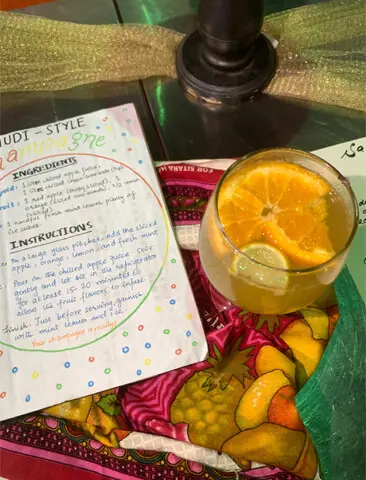 UDI-STYLE
hampagne
INGREDIENTS
1 litre chilled apple juice,
1 litre chilled lemon
1 red apple (thinly sliced), 1
orange (sliced into rounds), 1/2 lemon
(sliced)
1 handful fresh mint leaves, plenty of
ice cubes.
INSTRUCTIONS
In a large glass pitcher, add the sliced
apple, orange, lemon and fresh mint
Pour in the chilled apple juice. Stir
gently and let sit in the refrigerator
for at least 15-20 minutes to
allow the fruit flavors to infuse
finish. Just before serving, garnish
with mint leaves and ice.
Your champagne is ready!
FOR SITARA
Sa